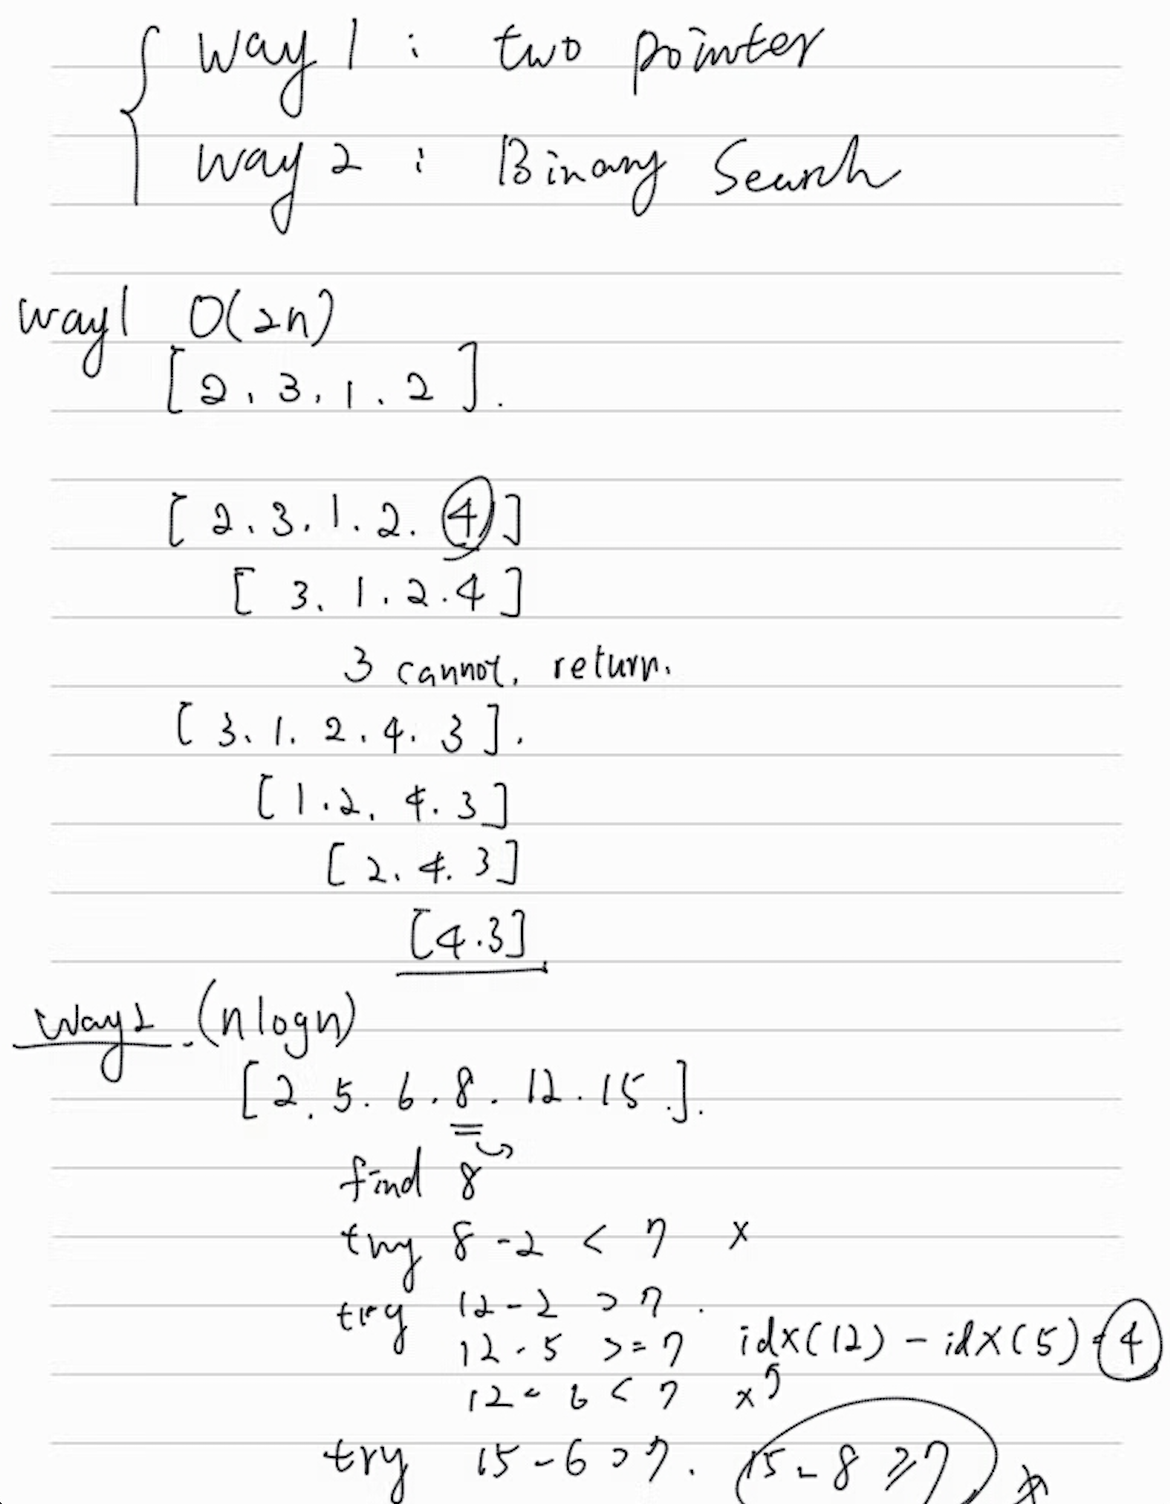 way 1 : two pointer
way 2 : Binary Search
way1 O(2n)
[2, 3, 1, 2].
[2, 3, 1, 2, 4]
[3, 1, 2, 4]
3 cannot, return.
[3, 1, 2, 4, 3].
[1, 2, 4, 3]
[2, 4, 3]
[4, 3]
way2. (nlogn)
[2, 5, 6, 8, 12, 15].
find 8
try 8 - 2 < 7 x
try 12 - 2 > 7.
12 - 5 >= 7 idx(12) - idx(5) = 4
12 - 6 < 7 x
try 15 - 6 > 7. 15 - 8 ≥ 7